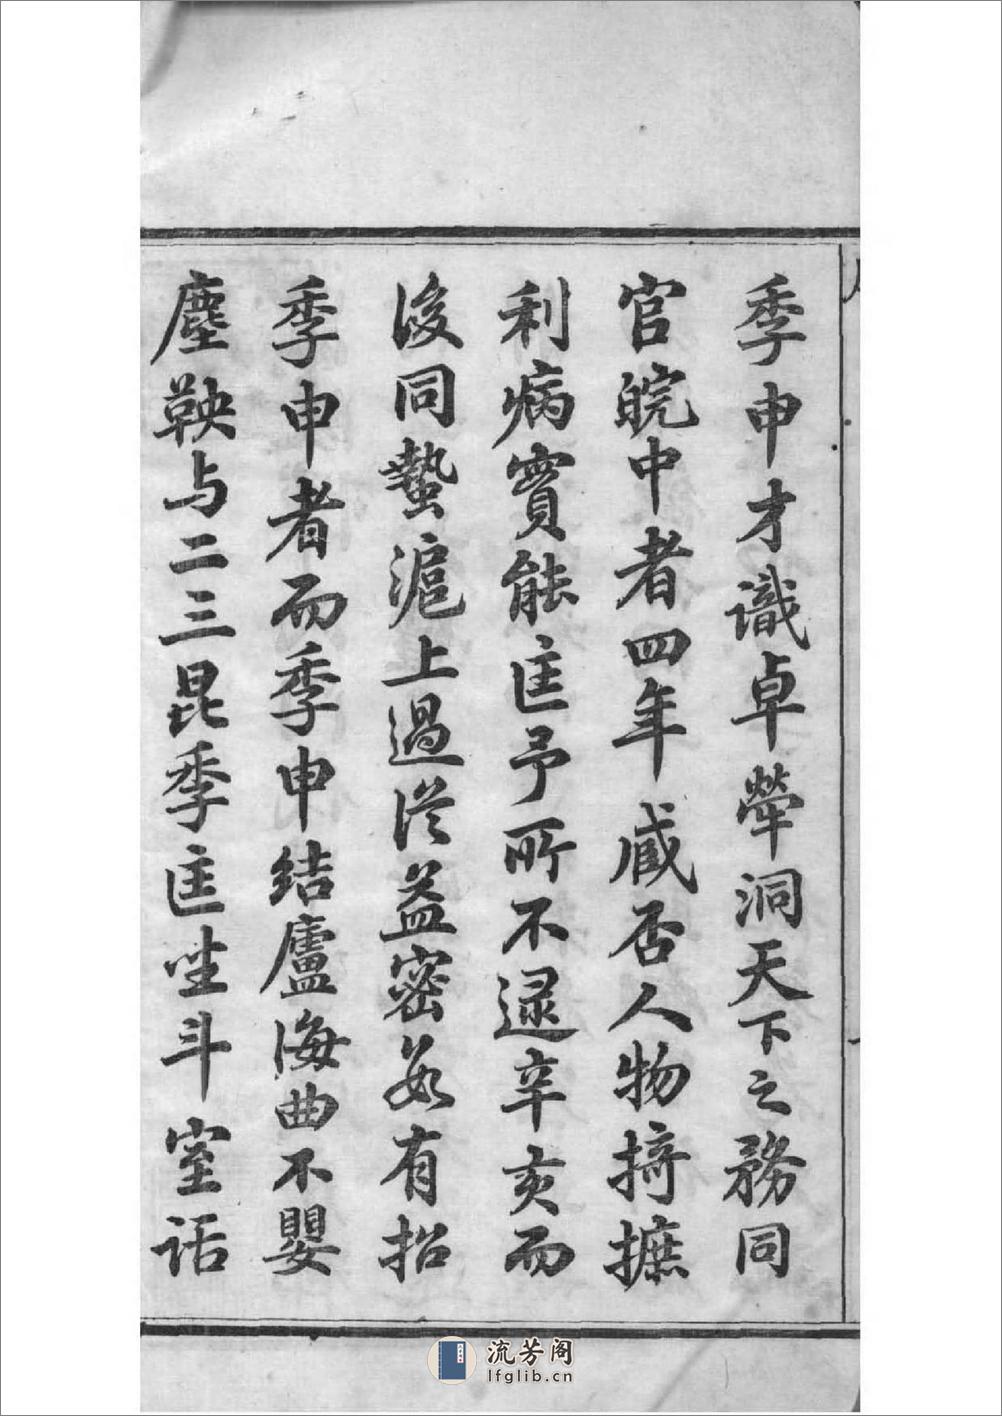 季申才識卓犖洞天下之務同
官皖中者四年臧否人物掎摭
利病實能匡予所不逮辛亥而
後同蟄滬上過從益密每有招
季申者而季申結廬海曲不嬰
塵鞅与二三昆季匡坐斗室話
流芳阁
lfglib.cn